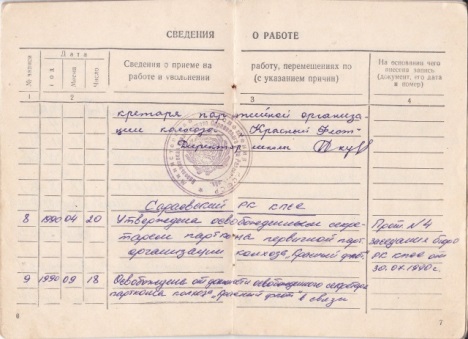 СВЕДЕНИЯ О РАБОТЕ
№ записи
Дата
год
Месяц
Число
Сведения о приеме на
работе и увольнении
работу, перемещениях по
(с указанием причин)
На основании чего
внесена запись
(документ, его дата
и номер)
1 2 3 4
кретаря партийной организа-
ции колхоза „Красный Флот"
Директор школы
РК КПСС
8 1990 04 20 Утверждена освобожденным секре-
тарем парткома первичной парт.
организации колхоза „Красный флот"
Прот. №4
заседания бюро
РК КПСС от
9 1990 09 18 Освобождена от должности освобожденного секретаря
парткома колхоза „Красный флот" в связи
6 7